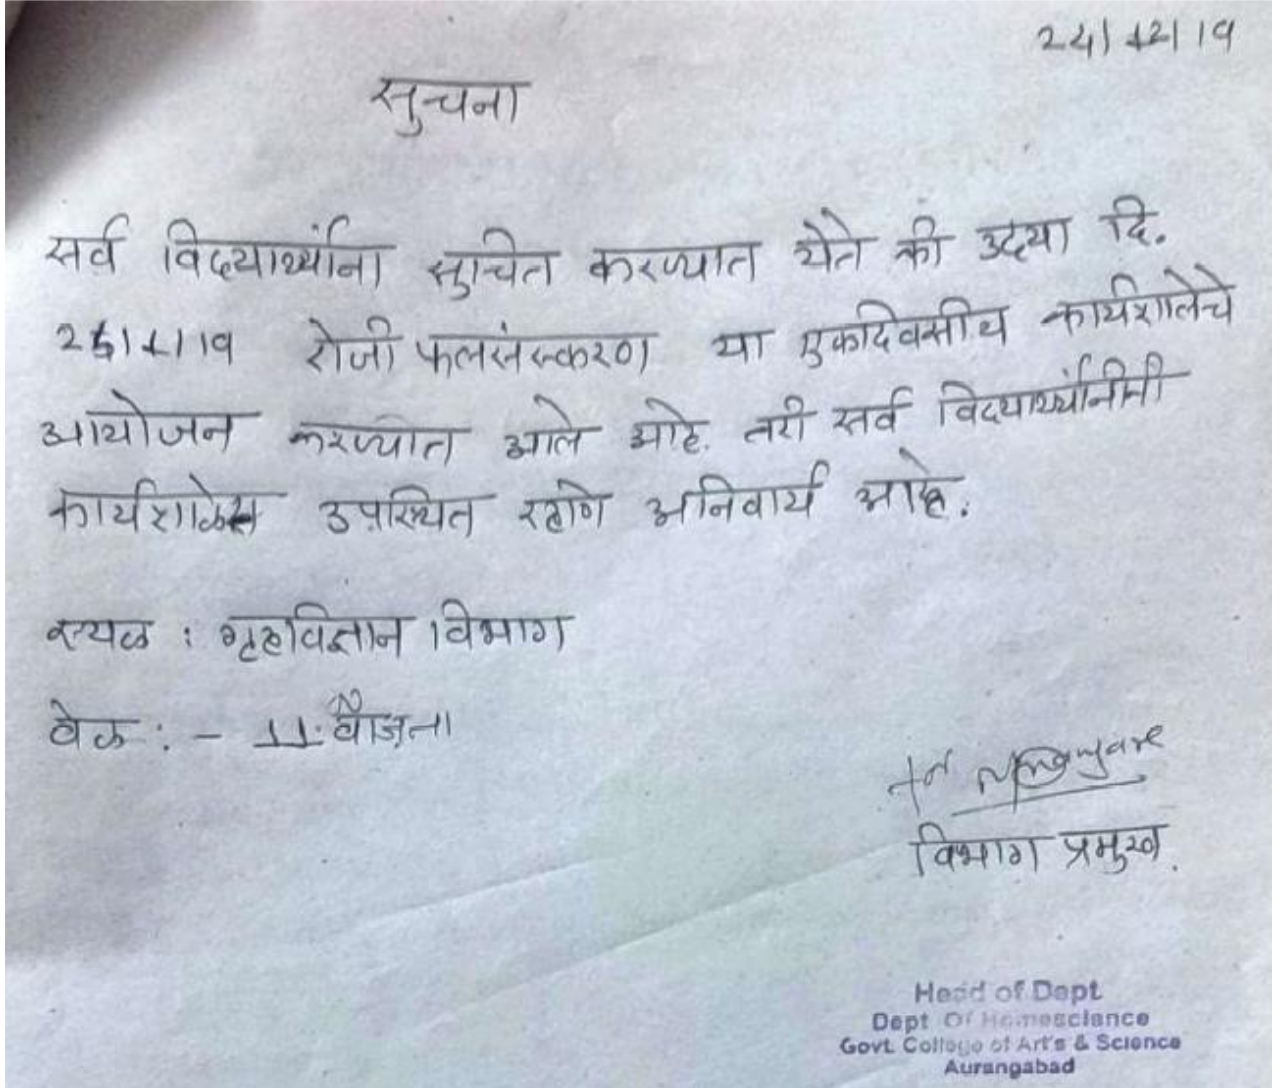 24/12/19
सुचना
सर्व विदयार्थ्यांना सुचित करण्यात येते की उदया दि.
रोजी फलसंस्करण या एकदिवसीय कार्यशालेचे
आयोजन करण्यात आले आहे. तरी सर्व विदयार्थ्यांनीनी
कार्यशाळेस उपस्थित रहाणे अनिवार्य आहे.
स्थळ : गृहविज्ञान विभाग
वेळ : - 11. वाजता
विभाग प्रमुख.
Head of Dept
Dept Of Homescience
Govt. College of Art's & Science
Aurangabad